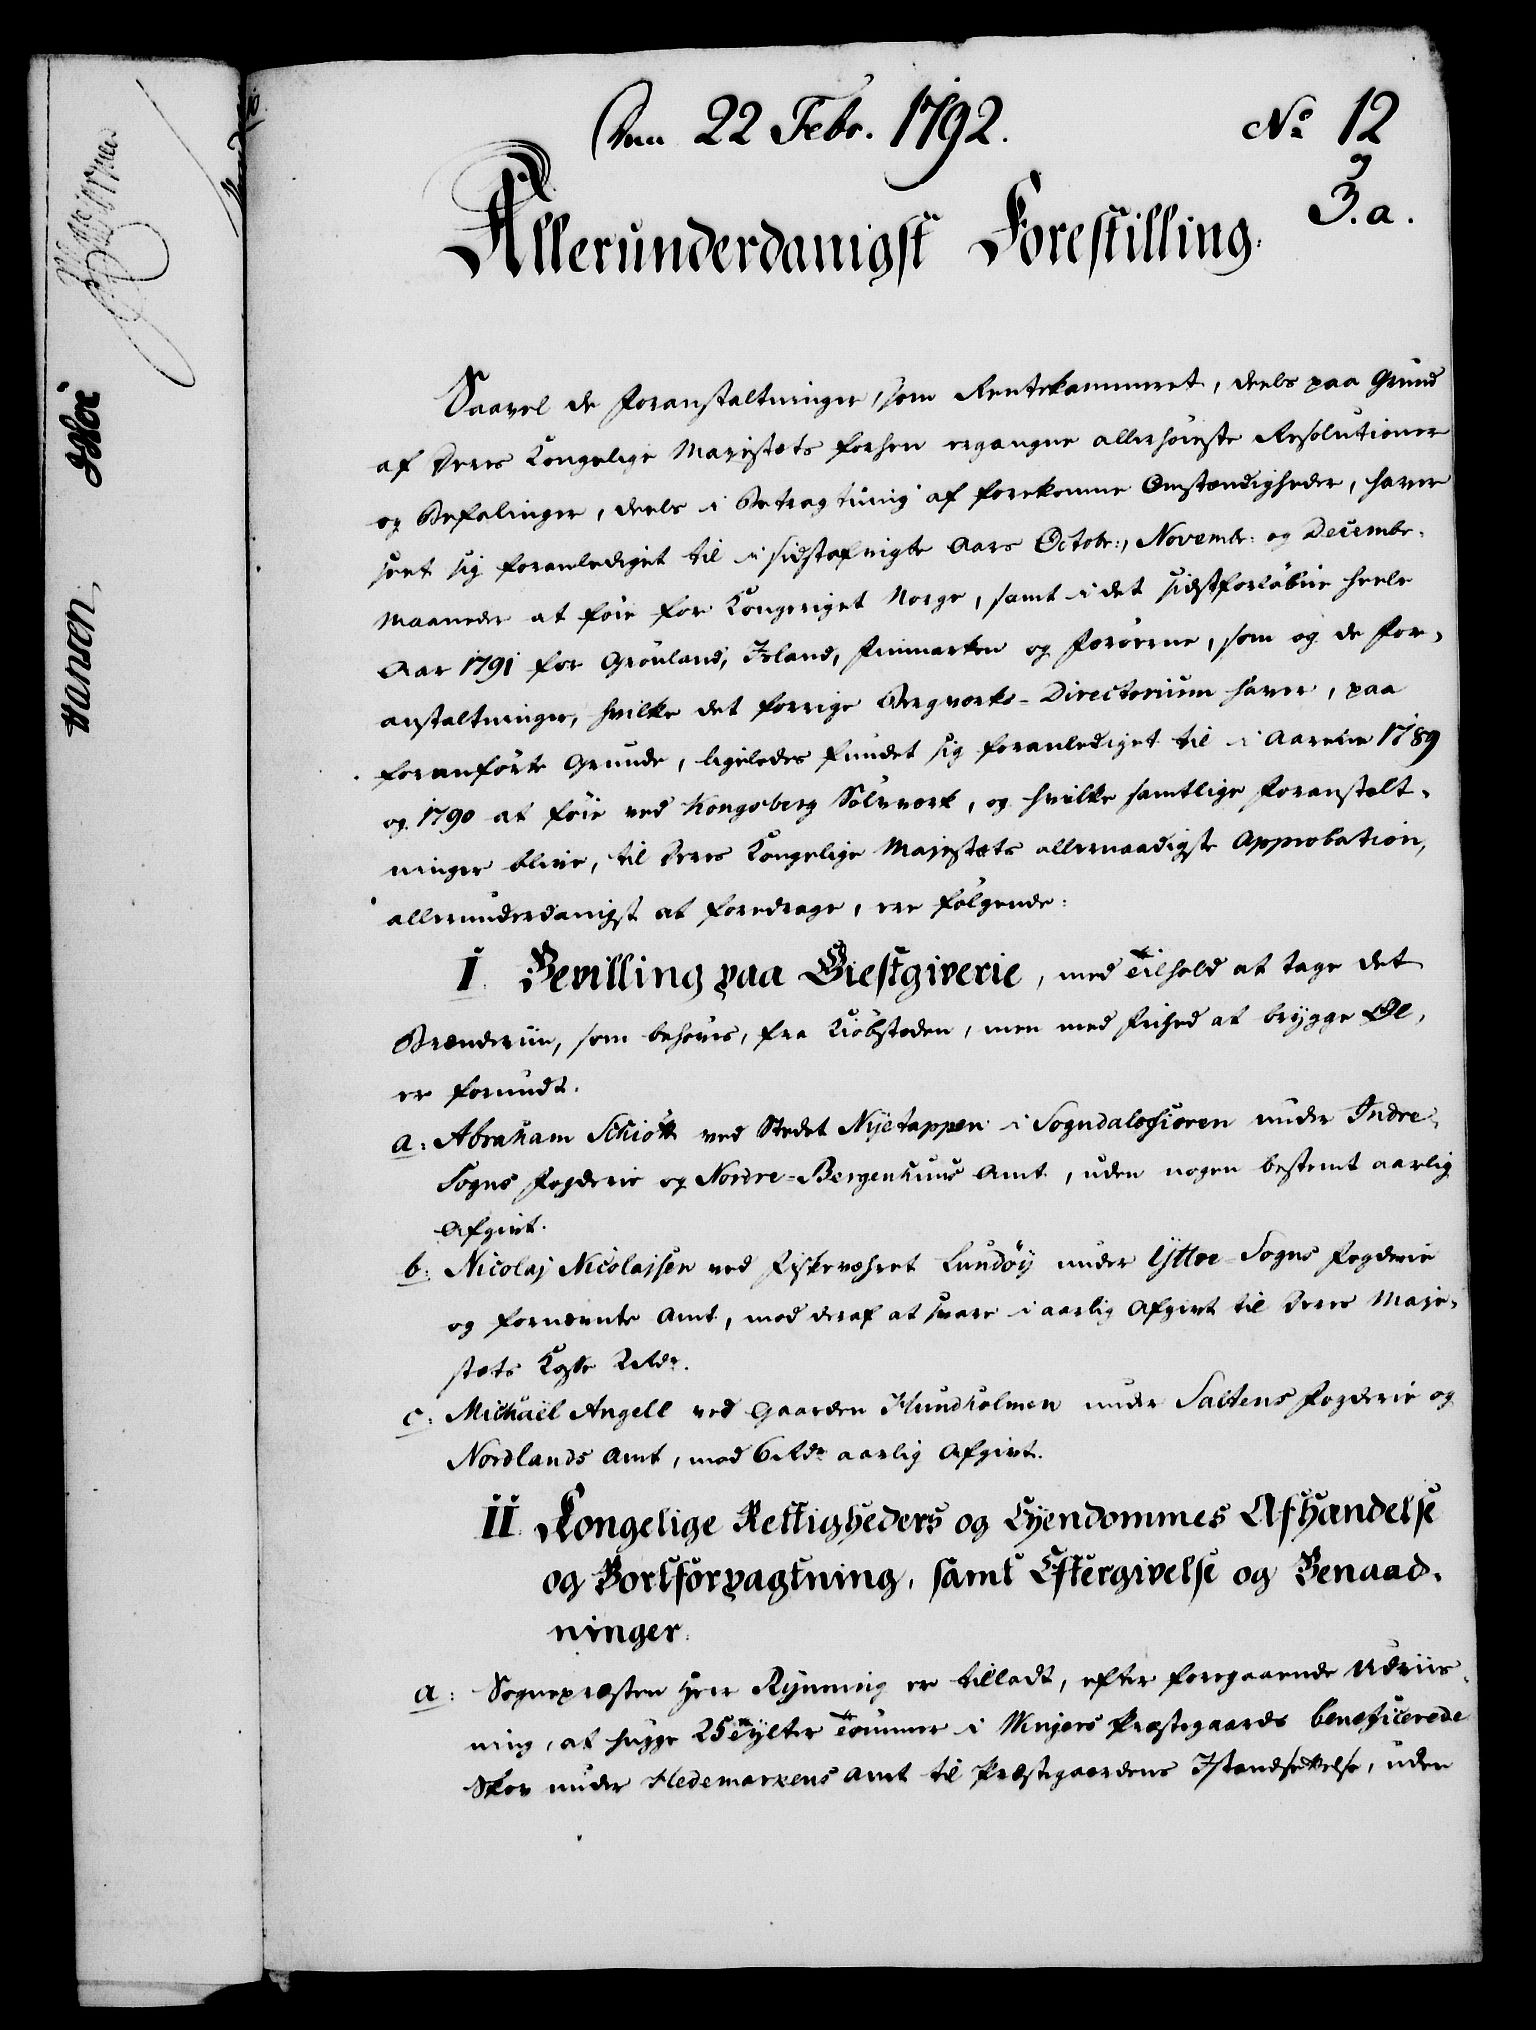 Den 22 Febr. 1792. No 12
og
3.a.
Allerunderdanigst Forestilling.
Saavel de Foranstaltninger, som Rentekammeret, deels paa Grund
af Deres Kongelige Majestæts forhen ergangne allerhöieste Resolutioner
og Befalinger, deels i Betragtning af forekomne Omstændigheder, haver
seet sig foranlediget til i sidstafvigte Aars Octobr:, Novembr: og Decembr.
Maaneder at föie for Kongeriget Norge, samt i det sidstforløbne heele
Aar 1791 for Grönland, Island, Finmarken og Færöerne, som og de For-
anstaltninger, hvilke det forrige Bergverks-Directorium haver, paa
foranförte Grunde, ligeledes fundet sig foranlediget til i Aarene 1789
og 1790 at föie ved Kongsberg Sölvverk, og hvilke samtlige Foranstalt-
ninger blive, til Deres Kongelige Majestæts allernaadigste Approbation,
allerunderdanigst at foredrage, ere fölgende:
I. Bevilling paa Giestgiverie, med Tilhold at tage det
Brændeviin, som behöves, fra Kiöbstæden, men med Frihed at brygge Øl,
er forundt.
a: Abraham Schiött ved Stedet Nyetappen i Sogndalsfiören under Indre-
Sogns Fogderie og Nordre-Bergenhuus Amt, uden nogen bestemt aarlig
Afgivt.
b: Nicolaj Nicolajsen ved Fiskeværet Lundöy under Yttre Sogns Fogderie
og fornævnte Amt, mod deraf at svare i aarlig Afgivt til Deres Maje-
stæts Kasse 2 Rdr.
c: Michaël Angell ved Gaarden Hundholmen under Saltens Fogderie og
Nordlands Amt, mod 6 Rdr aarlig Afgivt.
II. Kongelige Rettigheders og Eyendommes Afhandelse
og Bortforpagtning, samt Eftergivelse og Benaad-
ninger.
a: Sognepræsten Herr Rynning er tilladt, efter foregaaende Udviis-
ning, at hugge 25 Tylter Tömmer i Vingers Præstegaards beneficerede
Skov under Hedemarkens Amt til Præstegaardens Istandsættelse, uden
Hansen.